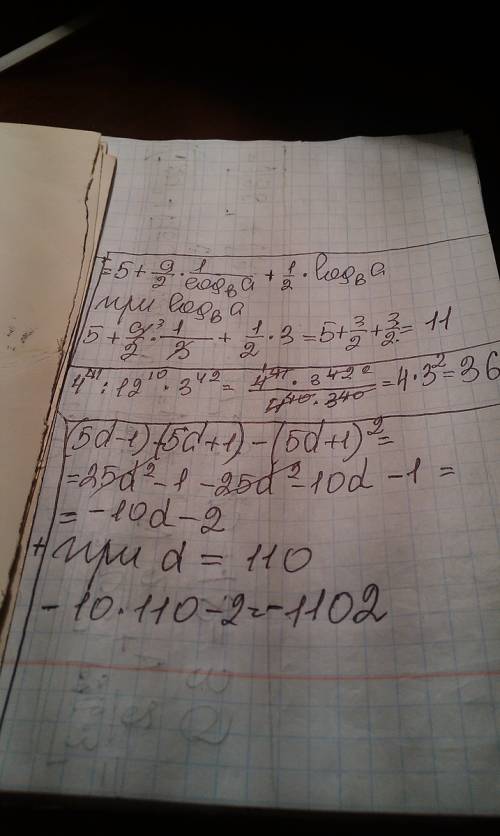 = 5 + 9/2 · 1/log_b a + 1/2 · log_b a
при log_b a
5 + 9/2 ³ · 1/3 + 1/2 · 3 = 5 + 3/2 + 3/2 = 11
4^41 : 12^10 · 3^42 = 4^41 · 3^42 ² / 4^40 · 3^40 = 4 · 3² = 36
(5d-1)(5d+1) - (5d+1)² =
= 25d² - 1 - 25d² - 10d - 1 =
= -10d - 2
+ при d = 110
- 10 · 110 - 2 = -1102